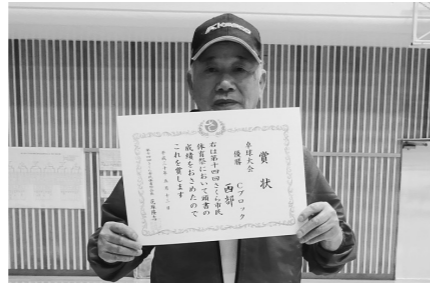 賞状
卓球大会
優勝
Cブロック
西部
右は第十四回さくら市民
体育祭において頭書の
成績をおさめたので
これを賞します